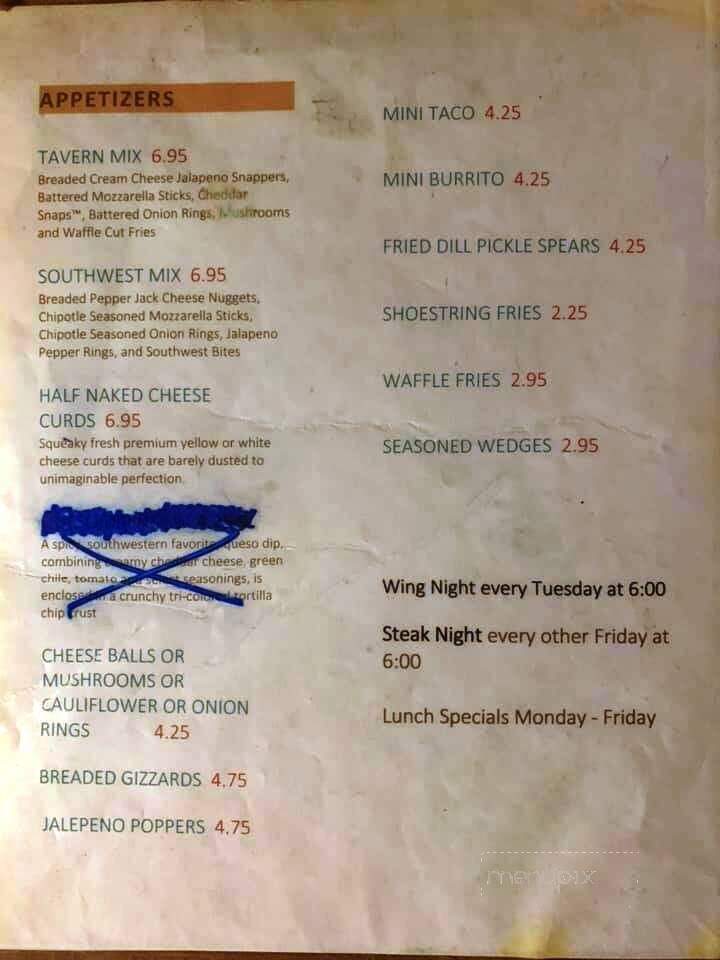 APPETIZERS
TAVERN MIX 6.95
Breaded Cream Cheese Jalapeno Snappers,
Battered Mozzarella Sticks, Cheddar
Snaps™, Battered Onion Rings, Mushrooms
and Waffle Cut Fries
SOUTHWEST MIX 6.95
Breaded Pepper Jack Cheese Nuggets,
Chipotle Seasoned Mozzarella Sticks,
Chipotle Seasoned Onion Rings, Jalapeno
Pepper Rings, and Southwest Bites
HALF NAKED CHEESE
CURDS 6.95
Squeaky fresh premium yellow or white
cheese curds that are barely dusted to
unimaginable perfection.
A spicy, southwestern favorite queso dip,
combining creamy cheddar cheese, green
chile, tomato and select seasonings, is
enclosed in a crunchy tri-colored tortilla
chip crust
CHEESE BALLS OR
MUSHROOMS OR
CAULIFLOWER OR ONION
RINGS 4.25
BREADED GIZZARDS 4.75
JALEPENO POPPERS 4.75
MINI TACO 4.25
MINI BURRITO 4.25
FRIED DILL PICKLE SPEARS 4.25
SHOESTRING FRIES 2.25
WAFFLE FRIES 2.95
SEASONED WEDGES 2.95
Wing Night every Tuesday at 6:00
Steak Night every other Friday at
6:00
Lunch Specials Monday - Friday
menupix